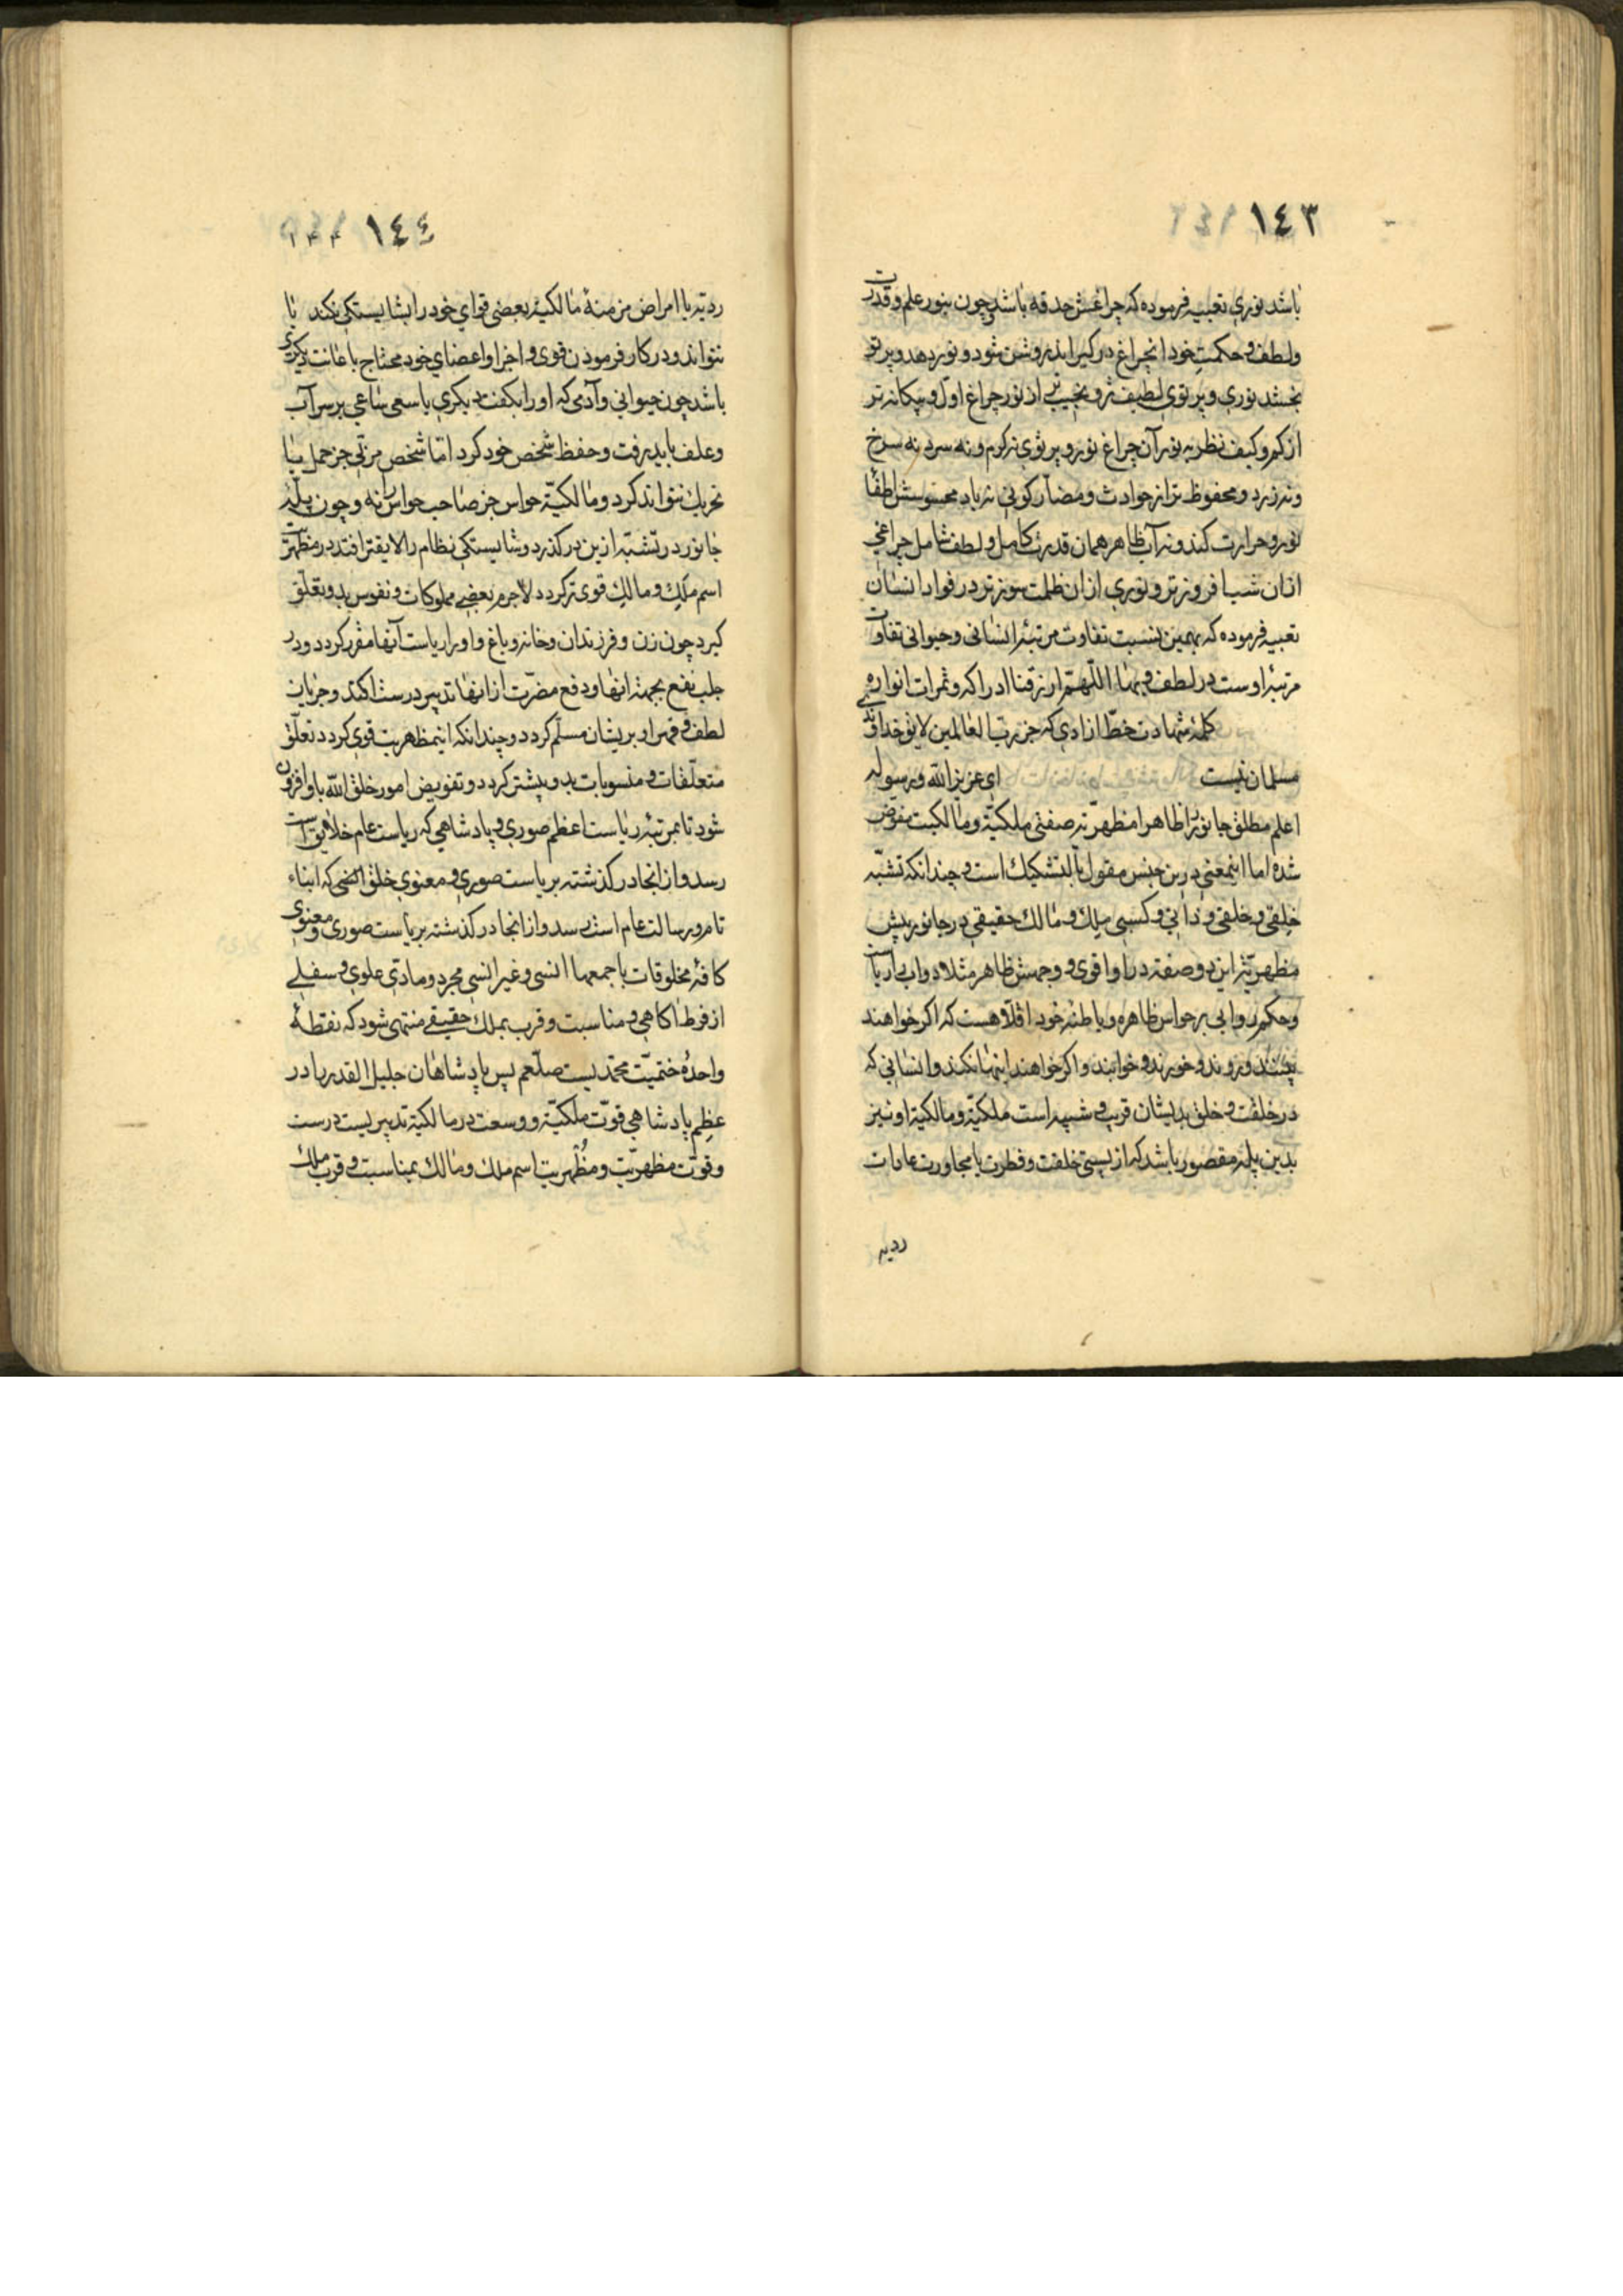 ١٤٣
باشد نوری تعبیه فرموده که چراغش حدقه باشد چون بنور علم و قدرت
ولطف و حکمت خود انچراغ در گیراند روشن شود و نور دهد و پرتو
بخشد نوری و پرتوی لطیف تر و نجیب تر از نور چراغ اول و بیگانه تر
از کم و کیف نظر به نور آن چراغ نور و پرتوی نه گرم و نه سرد نه سرخ
ونه زرد و محفوظ تر از حوادث و مضار کونی نه باد محسوسش اطفا
نور و حرارت کند و نه آب ظاهر همان قدرت کامل و لطف شامل چراغی
از ان شب افروز تر و نوری از ان ظلمت سوز تر در فواد انسان
تعبیه فرموده که بهمین نسبت تفاوت مرتبهٔ انسانی و حیوانی تفاوت
مرتبهٔ اوست در لطف و بها اللّهم ارزقنا ادراکه و ثمرات انواره
کلمهٔ شهادت خط ازادی که جز رب العالمین لایق خداوندی
مسلمان نیست ای عزیز الله و رسوله
اعلم مطلق جانور را ظاهرا مظهریّه صفتی ملکیّة و مالکیت مفوّض
شده اما اینمعنی درین جنس مقول بالتشکیک است و چندانکه تشبّه
خِلقی و خُلقی و ذاتی و کسبی بملِک و مالک حقیقی در جانور بیش
مظهریّة این دو صفت در او اقوی و وجهش ظاهر مثلا دواب را ریاست
وحکم روایی بر حواس ظاهره و باطنهٔ خود اقلا هست که اگر خواهند
بینند و روند و خورند و خوابند و اگر خواهند اینها نکنند و انسانی که
در خلقت و خلق بدیشان قریب و شبیه است ملکیّة و مالکیّة او نیز
بدین پله مقصور باشد که از پستی خلقت و فطرت یا مجاورت عادات
ردیه
١٤٤
ردیّه یا امراض مزمنهٔ مالکیهٔ بعضی قوای خود را بشایستگی نکند یا
نتواند و در کار فرمودن قوی و اجزا و اعضای خود محتاج باعانت دیگری
باشد چون حیوانی و آدمی که او را بکفت دیگری یا سعی ساعی بر سر آب
وعلف باید رفت و حفظ شخص خود کرد اما شخص مرئی جز جمل بیا
تحریک نتواند کرد و مالکیّة حواس جز صاحب حواس را نه و چون پلّهٔ
جانور در تشبّه ازین در گذرد و شایستگی نظام را لایقتر افتد در مظهریت
اسم ملک و مالک قوی تر گردد لاجرم بعضی مملوکات و نفوس بدو تعلّق
گیرد چون زن و فرزندان و خانه و باغ و او را ریاست آنها مقرر گردد و در
جلب نفع بجهتهٔ انها و دفع مضرّت از انها تدبیر درست اکند و جریان
لطف و قهر او بریشان مسلّم گردد و چندانکه اینمظهریت قوی گردد تعلّق
متعلّقات و منسوبات بدو بیشتر گردد و تفویض امور خلق الله باو افزون
شود تا بمرتبهٔ ریاست اعظم صوری و پادشاهی که ریاست عام خلایق است
رسد و از انجا در گذشته بریاست صوری و معنوی خلق الخی که ابناء
تا مرور رسالت عام است رسد و از انجا در گذشته بریاست صوری و معنوی
کافهٔ مخلوقات باجمعها انسی و غیر انسی مجرد و مادی علوی و سفلی
از فرط اکاهی و مناسبت و قرب بملک حقیقی منتهی شود که نقطهٔ
واحدهٔ ختمیّت محمدیست صلّعم پس پادشاهان جلیل القدر را در
عظم پادشاهی قوّت ملکیّة و وسعت در مالکیّة تدبیریست درست
وقوّت مظهریّت و مُظهریت اسم ملک و مالک بمناسبت و قرب ملک